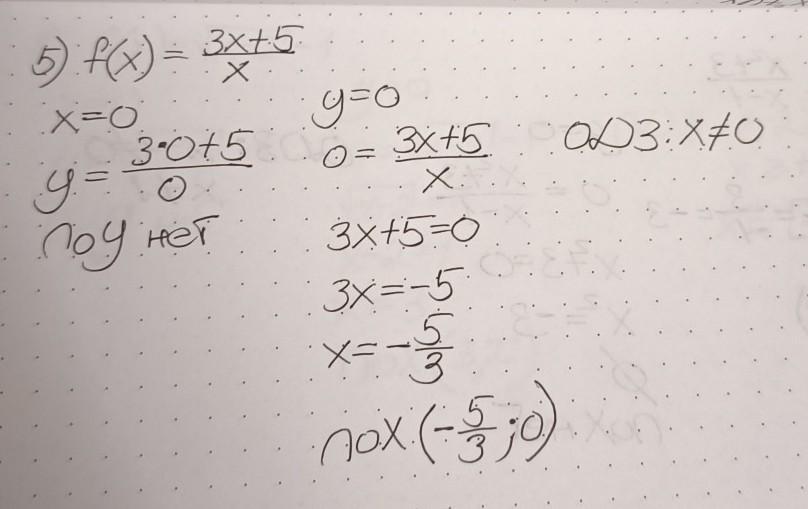 5) f(x) = (3x+5)/x
x=0
y = (3·0+5)/0
поу нет
y=0
0 = (3x+5)/x
3x+5=0
3x=-5
x=-5/3
пох (-5/3; 0)
ОДЗ: x≠0